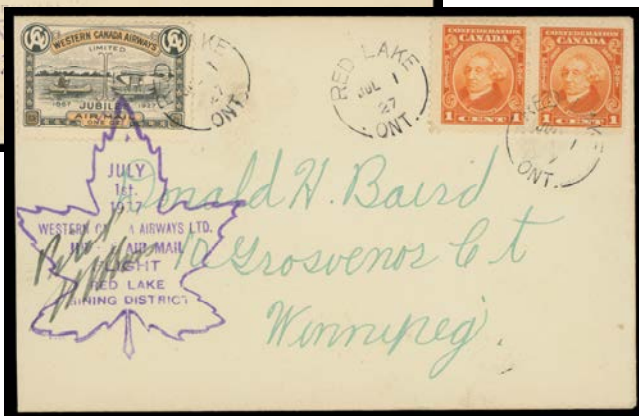 WESTERN CANADA AIRWAYS
LIMITED
1867 JUBILEE 1927
AIR MAIL
RED LAKE
JUL 1
27
ONT.
CONFEDERATION
CANADA
1 CENT 1
CONFEDERATION
CANADA
1 CENT 1
ONT.
JULY
1st.
WESTERN AIRWAYS LTD.
AIR MAIL
RED LAKE
MINING DISTRICT
Donald H. Baird
10 Grosvenor Ct
Winnipeg